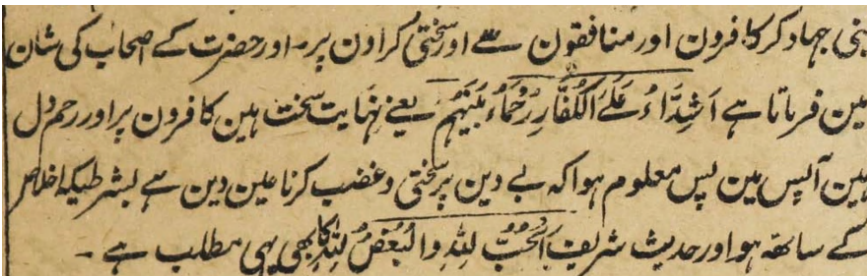 نبی جہاد کر کافرون اور منافقون سے اور سختی کر اون پر۔ اور حضرت کے اصحاب کی شان
مین فرماتا ہے اَشِدَّاءُ عَلَی الْکُفَّارِ رُحَمَاءُ بَیْنَہُمْ یعنے نہایت سخت ہین کافرون پر اور رحم دل
ہین آپس مین پس معلوم ہوا کہ بے دین پر سختی و غضب کرنا عین دین ہے بشرطیکہ اخلاص
کے ساتھ ہو اور حدیث شریف اَلْحُبُّ لِلّٰہِ وَالْبُغْضُ لِلّٰہِ کا بھی یہی مطلب ہے ۔